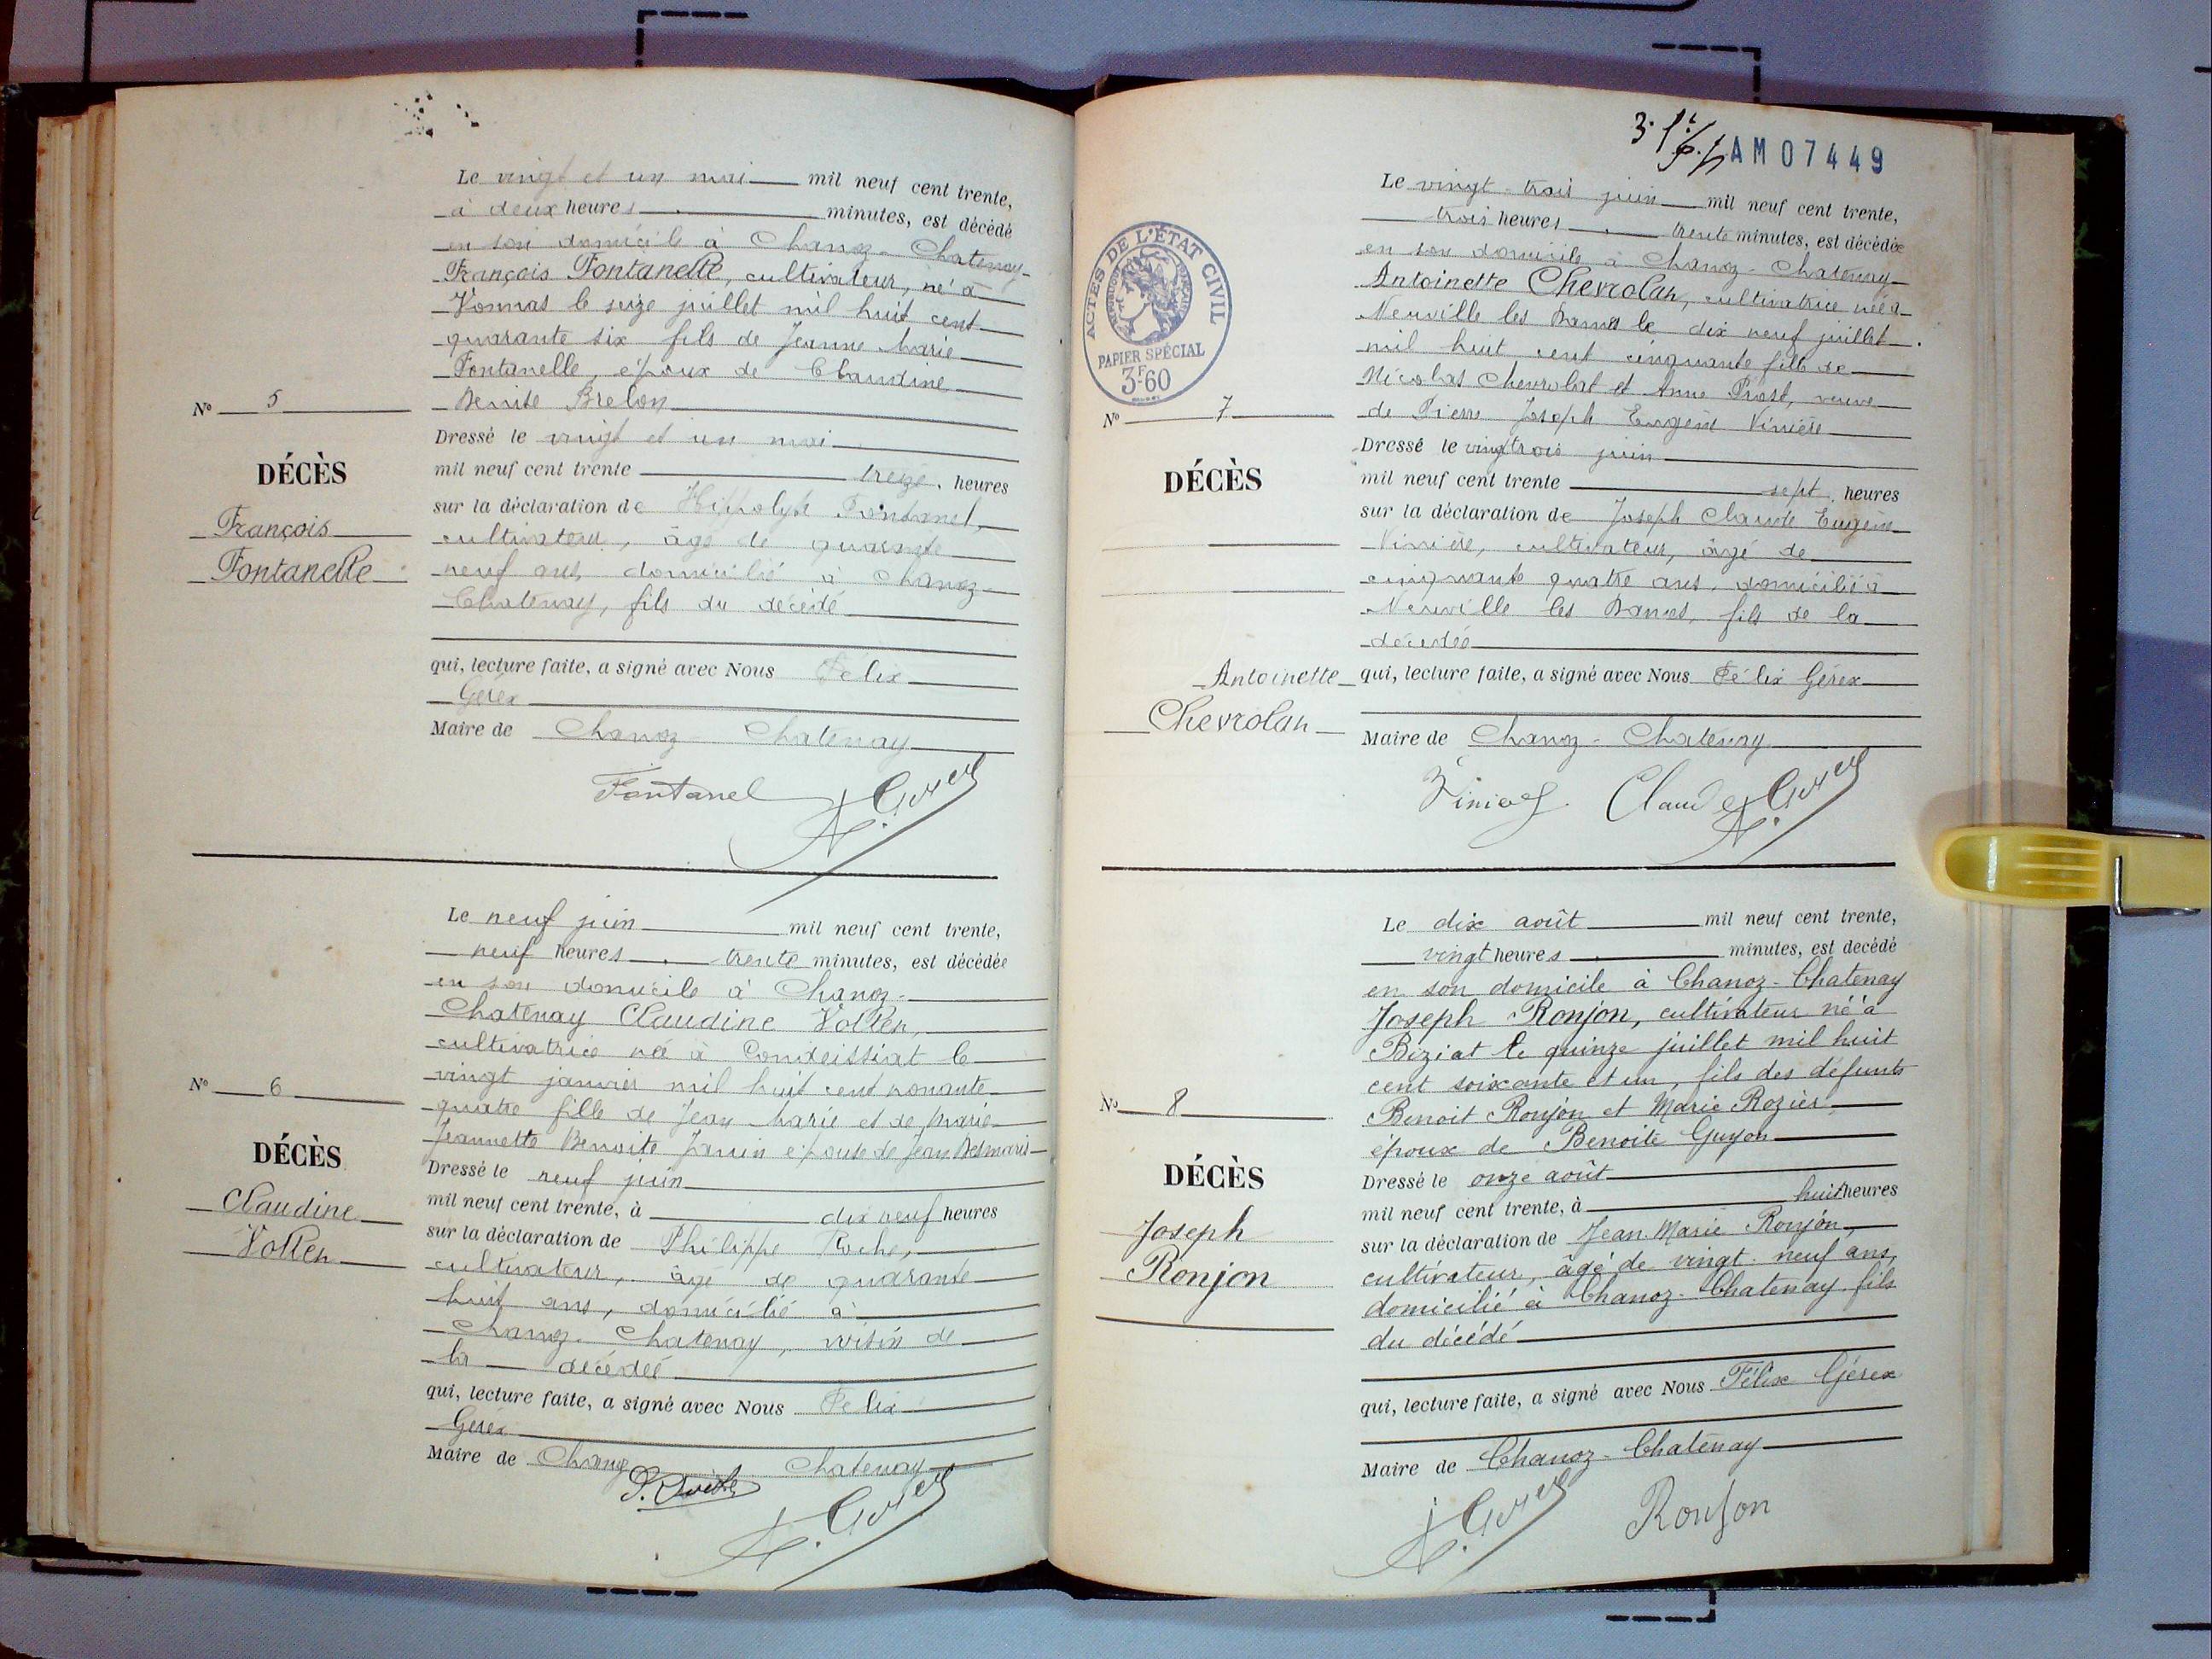 Le vingt et un mai mil neuf cent trente,
à deux heures minutes, est décédé
en son domicile à Chanoz-Chatenay
François Fontanelle, cultivateur, né à
Vonnas le seize juillet mil huit cent
quarante six fils de Jeanne Marie
Fontanelle, époux de Claudine
Benoite Brelon
N° 5
DÉCÈS
François
Fontanelle
Dressé le vingt et un mai
mil neuf cent trente treize heures
sur la déclaration de Hippolyte Fontanel,
cultivateur, âgé de quarante
neuf ans, domicilié à Chanoz-
Chatenay, fils du décédé
qui, lecture faite, a signé avec Nous Félix
Gérex
Maire de Chanoz-Chatenay
Fontanel F. Gérex
Le neuf juin mil neuf cent trente,
neuf heures trente minutes, est décédée
en son domicile à Chanoz-
Chatenay Claudine Vollen,
cultivatrice née à Condeissiat le
vingt janvier mil huit cent nonante
quatre fille de Jean Marie et de Marie
Jeannette Benoite Janin épouse de Jean Desmaris
N° 6
DÉCÈS
Claudine
Vollen
Dressé le neuf juin
mil neuf cent trente, à dix neuf heures
sur la déclaration de Philippe Roche,
cultivateur, âgé de quarante
huit ans, domicilié à
Chanoz-Chatenay, voisin de
la décédée
qui, lecture faite, a signé avec Nous Félix
Gerex
Maire de Chanoz Chatenay
F. Gérex
AM07449
ACTES DE L'ÉTAT CIVIL
PAPIER SPÉCIAL
3F60
Le vingt-trois juin mil neuf cent trente,
trois heures trente minutes, est décédée
en son domicile à Chanoz-Chatenay
Antoinette Chevrolan, cultivatrice née à
Neuville les Dames le dix neuf juillet
mil huit cent cinquante fille de
Nicolas Chevrolat et Anne Prost, veuve
de Pierre Joseph Eugène Vinière
N° 7
DÉCÈS
Antoinette
Chevrolan
Dressé le vingt trois juin
mil neuf cent trente sept heures
sur la déclaration de Joseph Claude Eugène
Vinière, cultivateur, âgé de
cinquante quatre ans, domicilié à
Neuville les Dames, fils de la
décédée
qui, lecture faite, a signé avec Nous Félix Gérex
Maire de Chanoz-Chatenay
Claude F. Gérex
Le dix août mil neuf cent trente,
vingt heures minutes, est decédé
en son domicile à Chanoz-Chatenay
Joseph Ronjon, cultivateur né à
Biziat le quinze juillet mil huit
cent soixante et un, fils des défunts
Benoit Ronjon et Marie Rozier
époux de Benoite Guyon
N° 8
DÉCÈS
Joseph
Ronjon
Dressé le onze août
mil neuf cent trente, à huit heures
sur la déclaration de Jean Marie Ronjon,
cultivateur, âgé de vingt-neuf ans,
domicilié à Chanoz-Chatenay fils
du décédé
qui, lecture faite, a signé avec Nous Félix Gérex
Maire de Chanoz-Chatenay
F. Gérex Ronjon